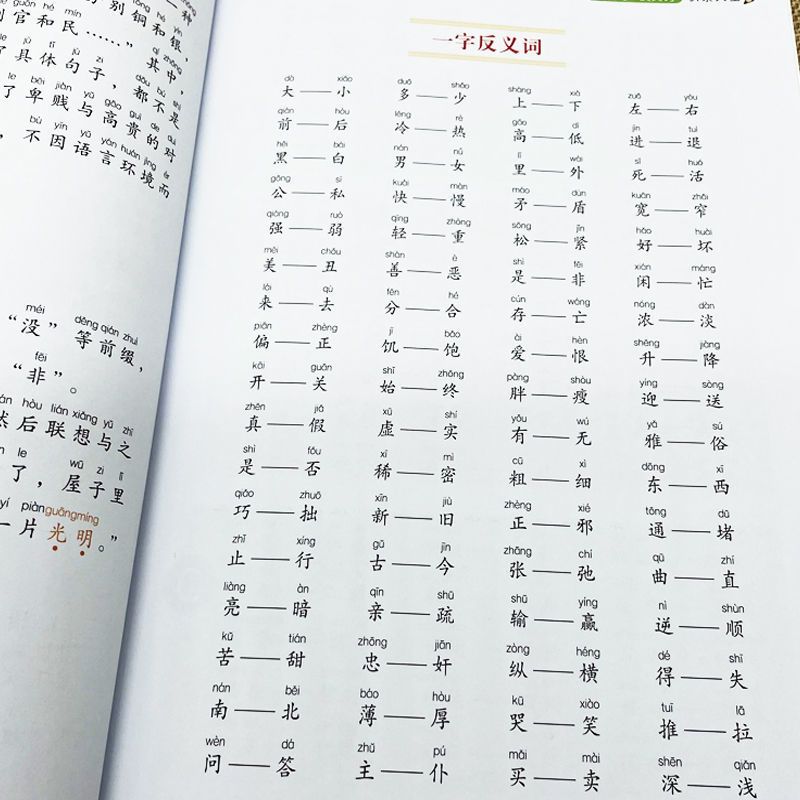 一种
guān hé mín
别铜和银,
别官和民……”其中,
了具体句子,都不是
le bēi jiàn yǔ gāo guì de duì
了卑贱与高贵的对
bù yīn yǔ yán huán jìng ér
,不因语言环境而
méi děng qián zhuì
“没”等前缀,
fēi
“非”。
hòu lián xiǎng yǔ zhī
然后联想与之
le wū zi lǐ
了,屋子里
yí piàn guāng míng
一片光明。”
一字反义词
dà xiǎo duō shǎo shàng xià zuǒ yòu
大——小 多——少 上——下 左——右
qián hòu lěng rè gāo dī jìn tuì
前——后 冷——热 高——低 进——退
hēi bái nán nǚ lǐ wài sǐ huó
黑——白 男——女 里——外 死——活
gōng sī kuài màn máo dùn kuān zhǎi
公——私 快——慢 矛——盾 宽——窄
qiáng ruò qīng zhòng sōng jǐn hǎo huài
强——弱 轻——重 松——紧 好——坏
měi chǒu shàn è shì fēi xián máng
美——丑 善——恶 是——非 闲——忙
lái qù fēn hé cún wáng nóng dàn
来——去 分——合 存——亡 浓——淡
piān zhèng jī bǎo ài hèn shēng jiàng
偏——正 饥——饱 爱——恨 升——降
kāi guān shǐ zhōng pàng shòu yíng sòng
开——关 始——终 胖——瘦 迎——送
zhēn jiǎ xū shí yǒu wú yǎ sú
真——假 虚——实 有——无 雅——俗
shì fǒu xī mì cū xì dōng xī
是——否 稀——密 粗——细 东——西
qiǎo zhuō xīn jiù zhèng xié tōng dǔ
巧——拙 新——旧 正——邪 通——堵
zhǐ xíng gǔ jīn zhāng chí qū zhí
止——行 古——今 张——弛 曲——直
liàng àn qīn shū shū yíng nì shùn
亮——暗 亲——疏 输——赢 逆——顺
kǔ tián zhōng jiān zòng héng dé shī
苦——甜 忠——奸 纵——横 得——失
nán běi báo hòu kū xiào tuī lā
南——北 薄——厚 哭——笑 推——拉
wèn dá zhǔ pú mǎi mài shēn qiǎn
问——答 主——仆 买——卖 深——浅